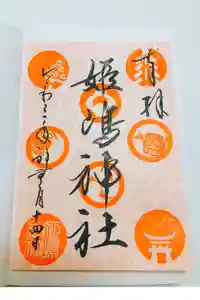 奉拝
姫嶋神社
令和 年 月十四日